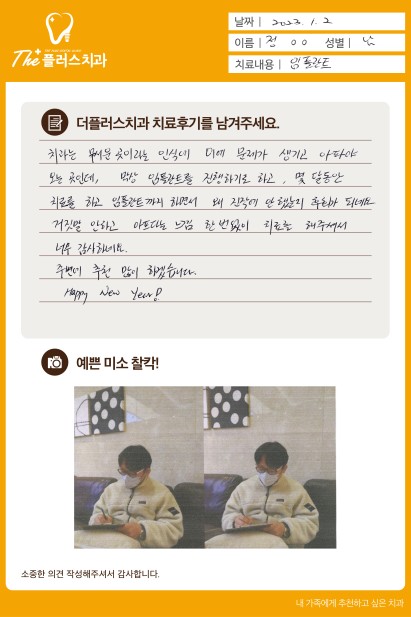 The 플러스치과
날짜 | 2023. 1. 2
이름 | 정 ㅇㅇ 성별 | 남
치료내용 | 임플란트
더플러스치과 치료후기를 남겨주세요.
치과는 무서운 곳이라는 인식에 미뤄 문제가 생기고 아파야
오는 곳인데, 막상 임플란트를 진행하기로 하고, 몇 달동안
치료를 하고 임플란트까지 하면서 왜 진작에 안했는지 후회가 되네요.
거짓말 안하고 아프다는 느낌 한번없이 치료를 해주셔서
너무 감사하네요.
주변에 추천 많이 하겠습니다.
Happy New Year!
예쁜 미소 찰칵!
소중한 의견 작성해주셔서 감사합니다.
내 가족에게 추천하고 싶은 치과